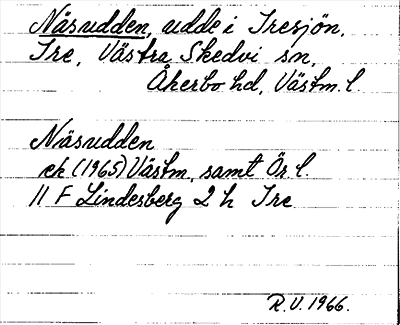 Näsudden, udde i Tresjön,
Tre, Västra Skedvi sn,
Åkerbo hd, Västm. l.
Näsudden
ek (1965) Västm. samt Ör l.
11 F Lindesberg 2 h Tre
R.V. 1966.